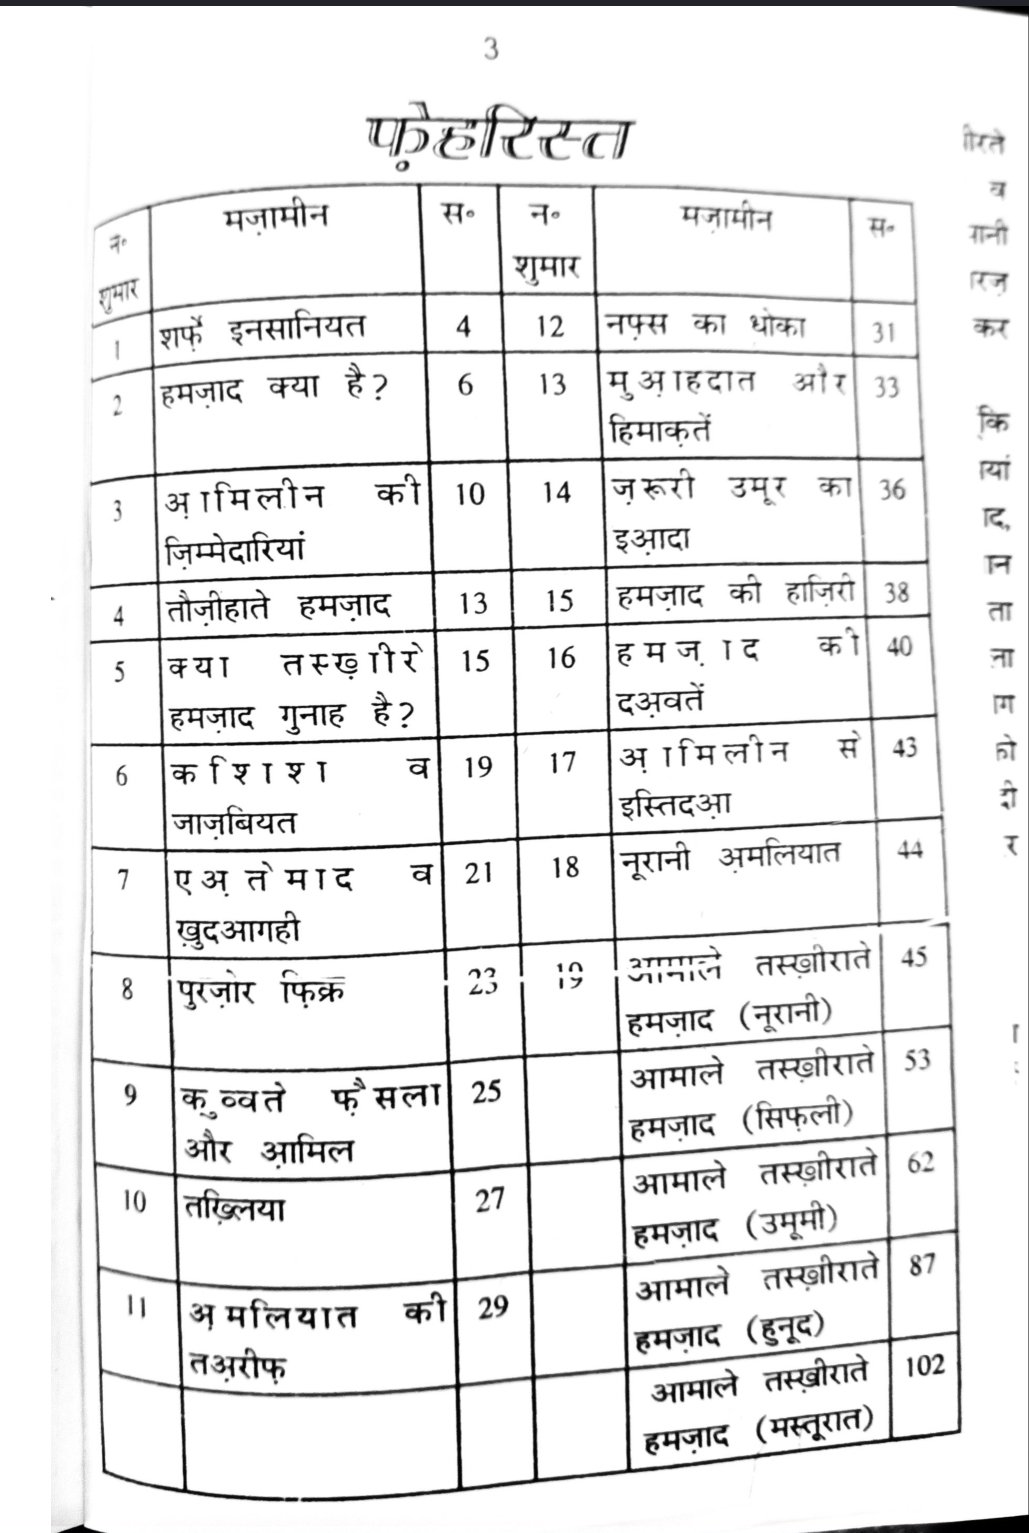 3
फ़ेहरिस्त
न॰ शुमार मज़ामीन स॰
1 शर्फ़े इनसानियत 4
2 हमज़ाद क्या है? 6
3 अ़ामिलीन की 10
ज़िम्मेदारियां
4 तौज़ीहाते हमज़ाद 13
5 क्या तस्ख़ीरे 15
हमज़ाद गुनाह है?
6 कशिश व 19
जाज़बियत
7 एअ़तेमाद व 21
ख़ुदआगही
8 पुरज़ोर फ़िक्र 23
9 क़ुव्वते फ़ैसला 25
और आ़मिल
10 तख़्लिया 27
11 अ़मलियात की 29
तअ़रीफ़
न॰ शुमार मज़ामीन स॰
12 नफ़्स का धोका 31
13 मुअ़ाहदात और 33
हिमाक़तें
14 ज़रूरी उमूर का 36
इआ़दा
15 हमज़ाद की हाज़िरी 38
16 हमज़ाद की 40
दअ़वतें
17 अ़ामिलीन से 43
इस्तिदआ़
18 नूरानी अ़मलियात 44
19 आमाले तस्ख़ीराते 45
हमज़ाद (नूरानी)
आमाले तस्ख़ीराते 53
हमज़ाद (सिफ़ली)
आमाले तस्ख़ीराते 62
हमज़ाद (उमूमी)
आमाले तस्ख़ीराते 87
हमज़ाद (हुनूद)
आमाले तस्ख़ीराते 102
हमज़ाद (मस्तूरात)
व
कर